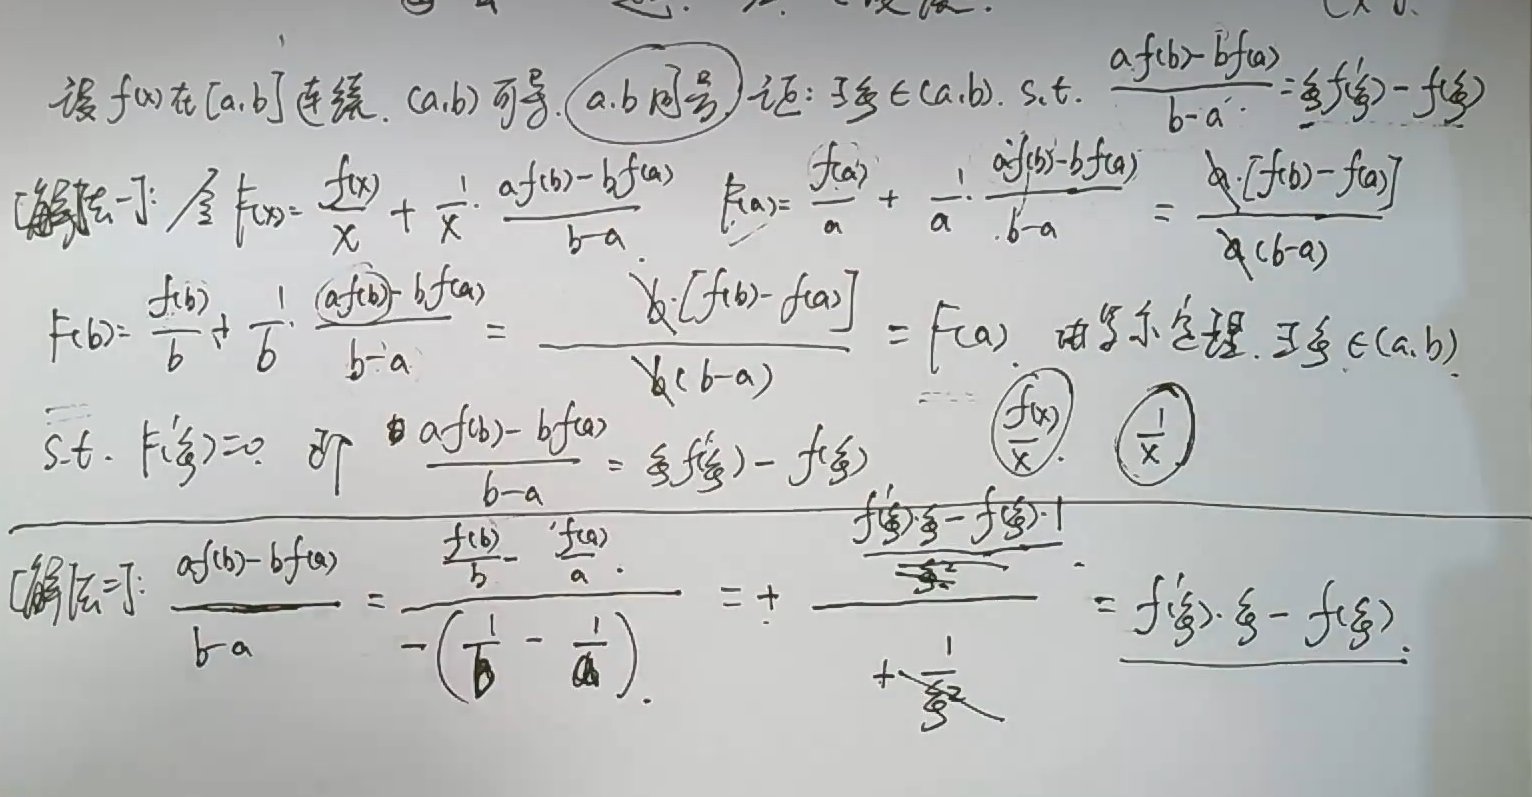 设 f(x) 在 [a,b] 连续. (a,b) 可导. a.b 同号 证: ∃ξ∈(a,b). s.t. \frac{af(b)-bf(a)}{b-a} = ξf'(ξ)-f(ξ)
[解法一]: 令 F(x)= \frac{f(x)}{x} + \frac{1}{x}·\frac{af(b)-bf(a)}{b-a}. F(a)= \frac{f(a)}{a} + \frac{1}{a}·\frac{af(b)-bf(a)}{b-a} = \frac{a·[f(b)-f(a)]}{a(b-a)}
F(b)= \frac{f(b)}{b} + \frac{1}{b}·\frac{af(b)-bf(a)}{b-a} = \frac{b·[f(b)-f(a)]}{b(b-a)} = F(a). 由罗尔定理. ∃ξ∈(a,b).
s.t. F'(ξ)=0. 即 \frac{af(b)-bf(a)}{b-a} = ξf'(ξ)-f(ξ) \frac{f(x)}{x}. \frac{1}{x}.
[解法二]: \frac{af(b)-bf(a)}{b-a} = \frac{\frac{f(b)}{b}-\frac{f(a)}{a}.}{-(\frac{1}{b}-\frac{1}{a}).} = + \frac{\frac{f'(ξ)·ξ-f(ξ)·1}{ξ^2}}{+\frac{1}{ξ^2}} = f'(ξ)·ξ-f(ξ).